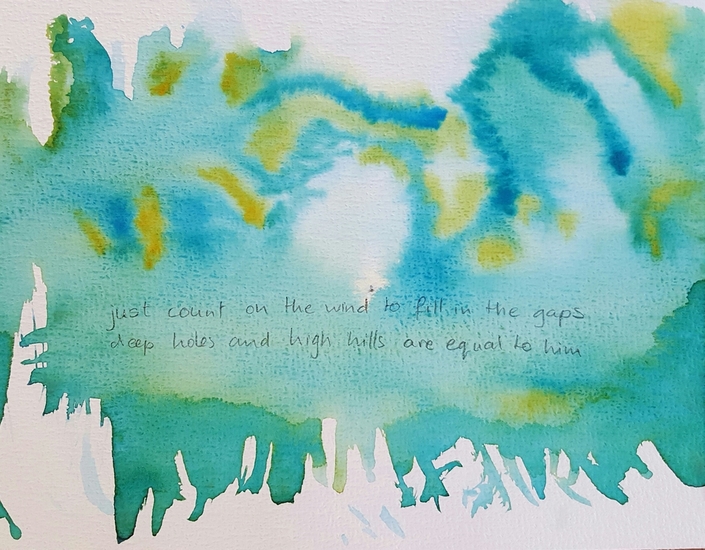 just count on the wind to fill in the gaps
deep holes and high hills are equal to him